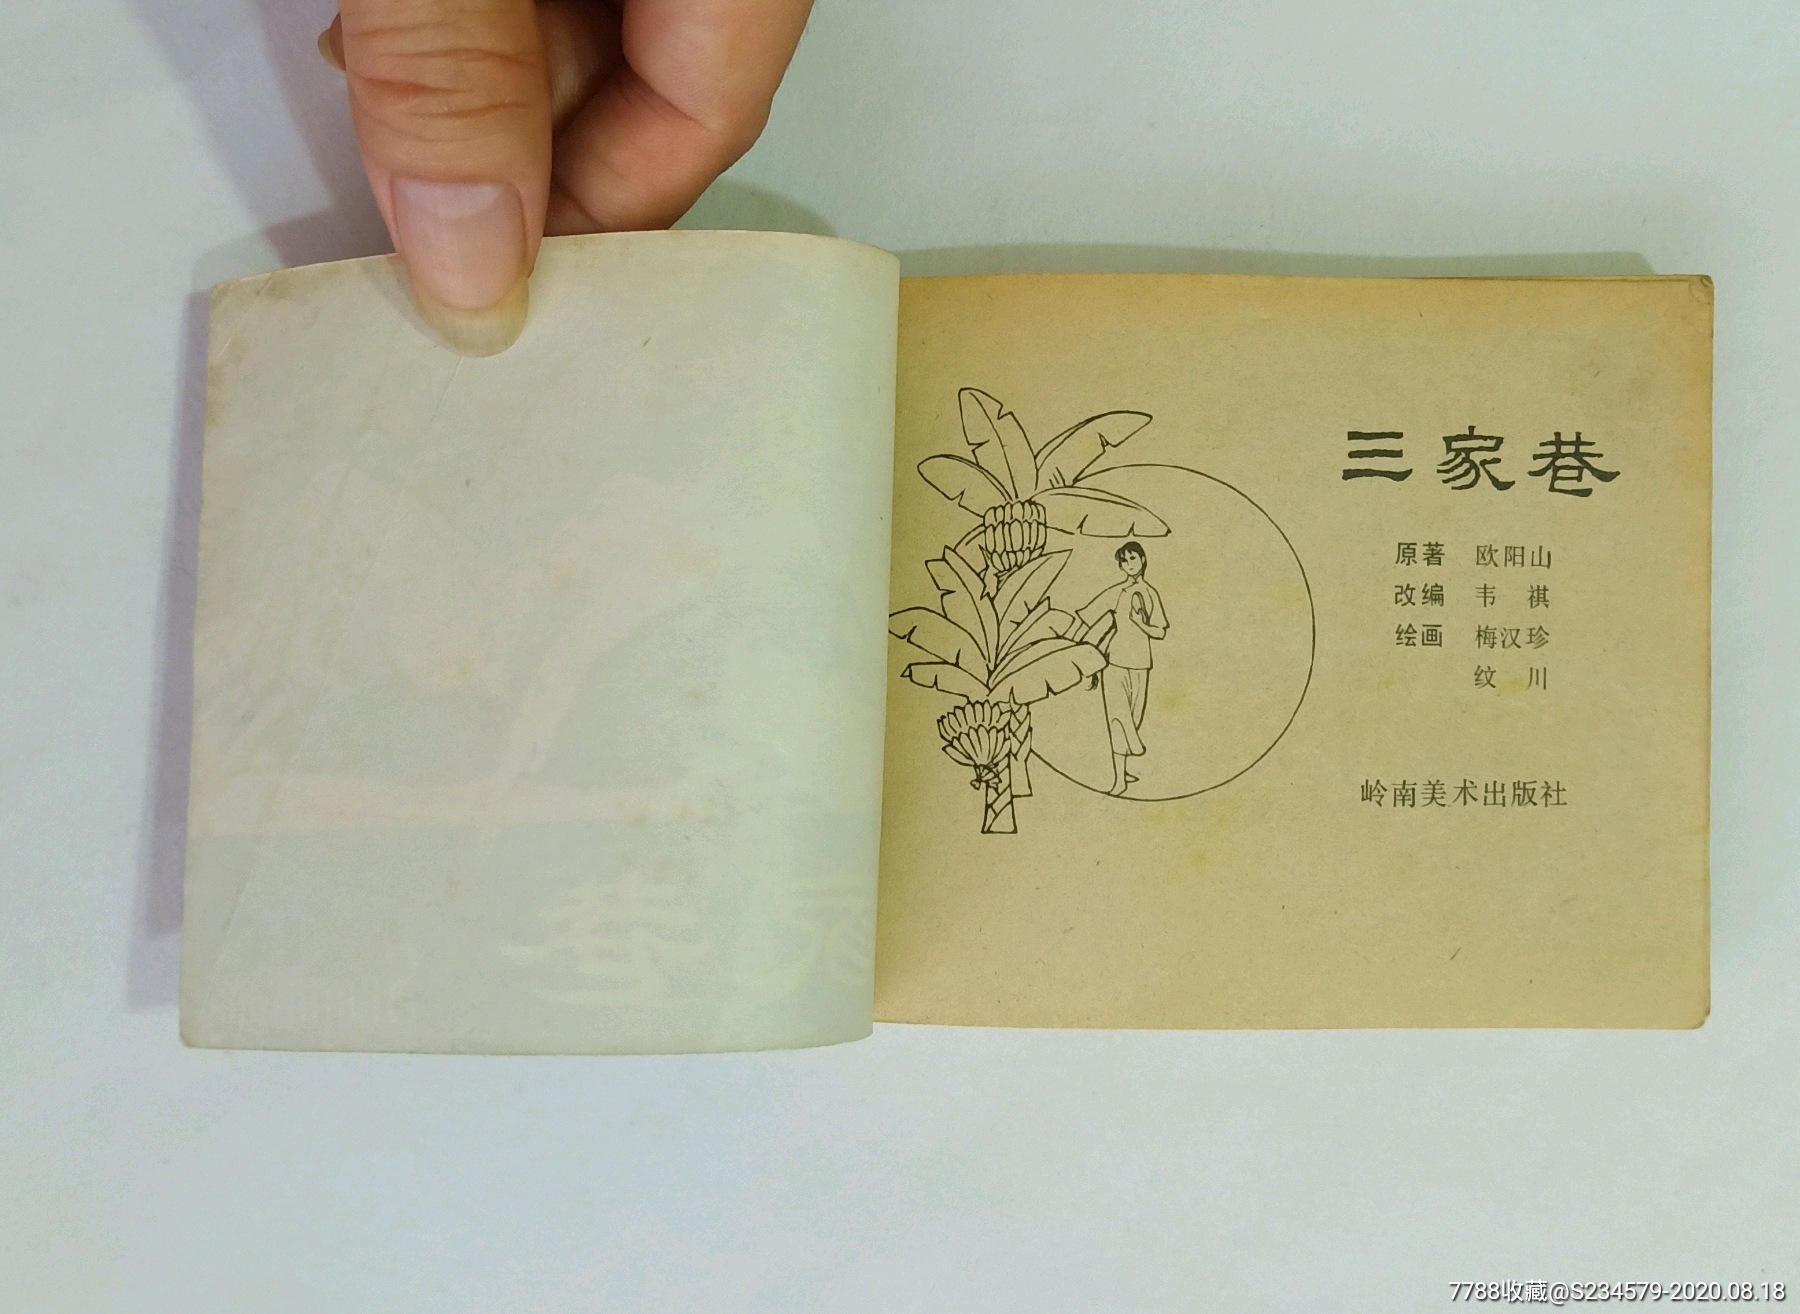 三家巷
原著 欧阳山
改编 韦 祺
绘画 梅汉珍
纹 川
岭南美术出版社
7788收藏@S234579-2020.08.18